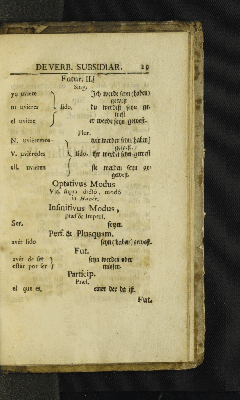 DE VERB. SUBSIDIAR. 29
Futur. II.
Sing.
yo uviere Ich werde seyn (haben)
gewest
tu uvieres sido, du werdest seyn ge-
west
el uviere er werde seyn gewest.
Plur.
N. uvieremos wir werden seyn (haben)
gewest.
V. uviéredes sido. ihr werdet seyn gewest
ell. uvieren sie werden seyn ge-
west.
Optativus Modus
Vid. supra dicto, modo
in Haver.
Infinitivus Modus,
præs & Imperf.
Ser. seyn.
Perf. & Plusquam.
avér sido seyn (haben) gewest.
Fut.
avér de ser seyn werden oder
estar por ser müssen.
Particip.
Præs.
el que es, einer der da ist.
Fut.